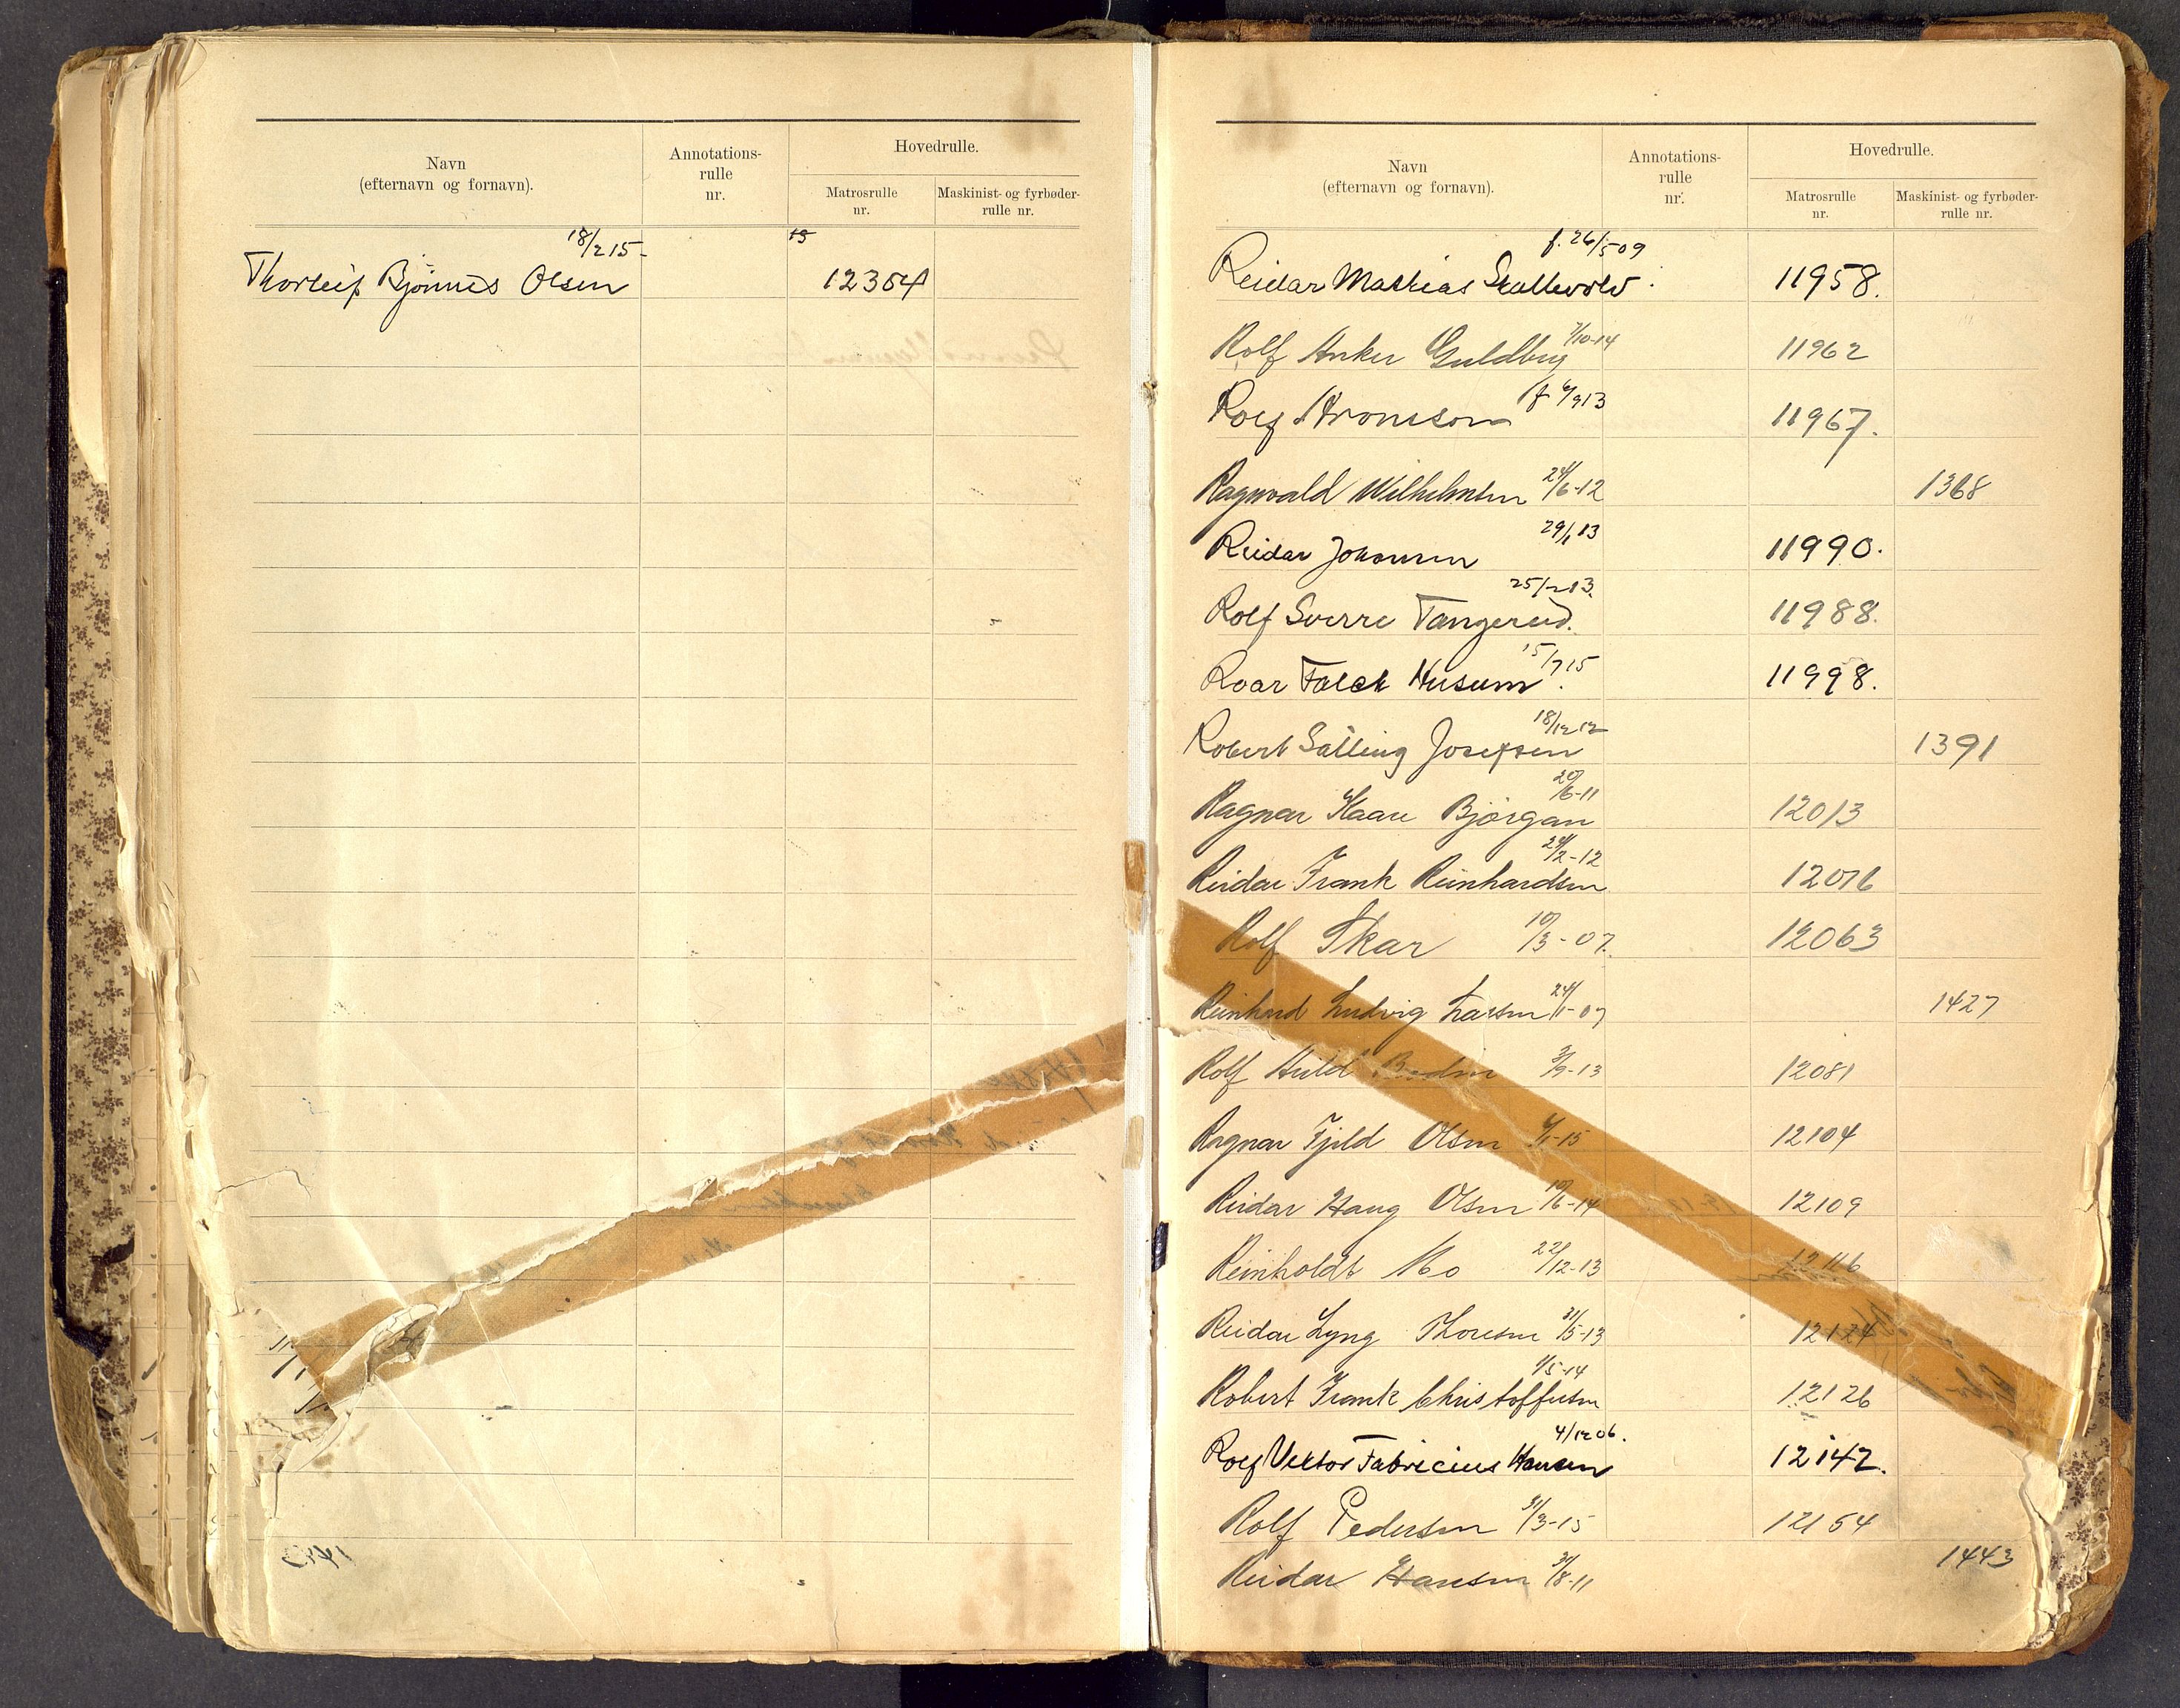 Navn
(efternavn og fornavn).
Annotations-
rulle
nr.
Hovedrulle.
Matrosrulle
nr.
Maskinist- og fyrbøder-
rulle nr.
18/2 15-
Thorleif Bjønnes Olsen 12354
Navn
(efternavn og fornavn).
Annotations-
rulle
nr.
Hovedrulle.
Matrosrulle
nr.
Maskinist- og fyrbøder-
rulle nr.
f. 26/5 09
Reidar Mathias Skallevold 11958.
Rolf Anker Guldbrg 7/10-14 11962
Rolf Aronsson f 6/9 13 11967.
Ragnvald Wilhelmsen 24/6-12 1368
Reidar Johansen 29/1 13 11990.
Rolf Sverre Tangerud. 25/2 13. 11988.
Roar Falck Husum. 15/7 15 11998.
Robert Salling Josefsen 18/12 12 1391
Ragnar Kaare Bjørgan 20/6-11 12013
Reidar Frank Reinhardsen 24/2-12 12016
Rolf Skar 10/3-07. 12063
Reinhard Ludvig Larsen 24/1-07 1427
Rolf Huld 3/9-13 12081
Ragnar Fjeld Olsen 6/1-15 12104
Reidar Haug Olsen 10/6-14 12109
Reinholdt Mo 22/12-13 12116
Reidar Lyng Thoresen 31/5-13 12124
Robert Frank Christoffersen 1/5-14 12126
Rolf Viktor Fabricius Hansen 4/12 06. 12142.
Rolf Pedersen 31/3-15 12154
Reidar Hansen 31/8-11 1443